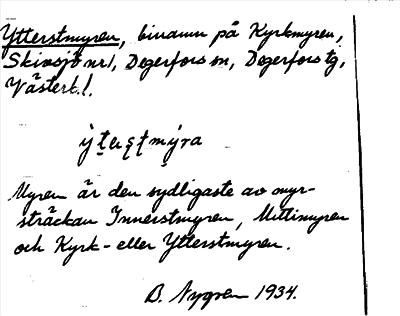 Ytterstmyren, binamn på Kyrkmyren,
Skivsjö nr 1, Degerfors sn, Degerfors tg,
Västerb. l.
ỳt̯ereşt̯mýra
Myren är den sydligaste av myr-
sträckan Innerstmyren, Mittimyren
och Kyrk- eller Ytterstmyren.
B. Nygren 1934.